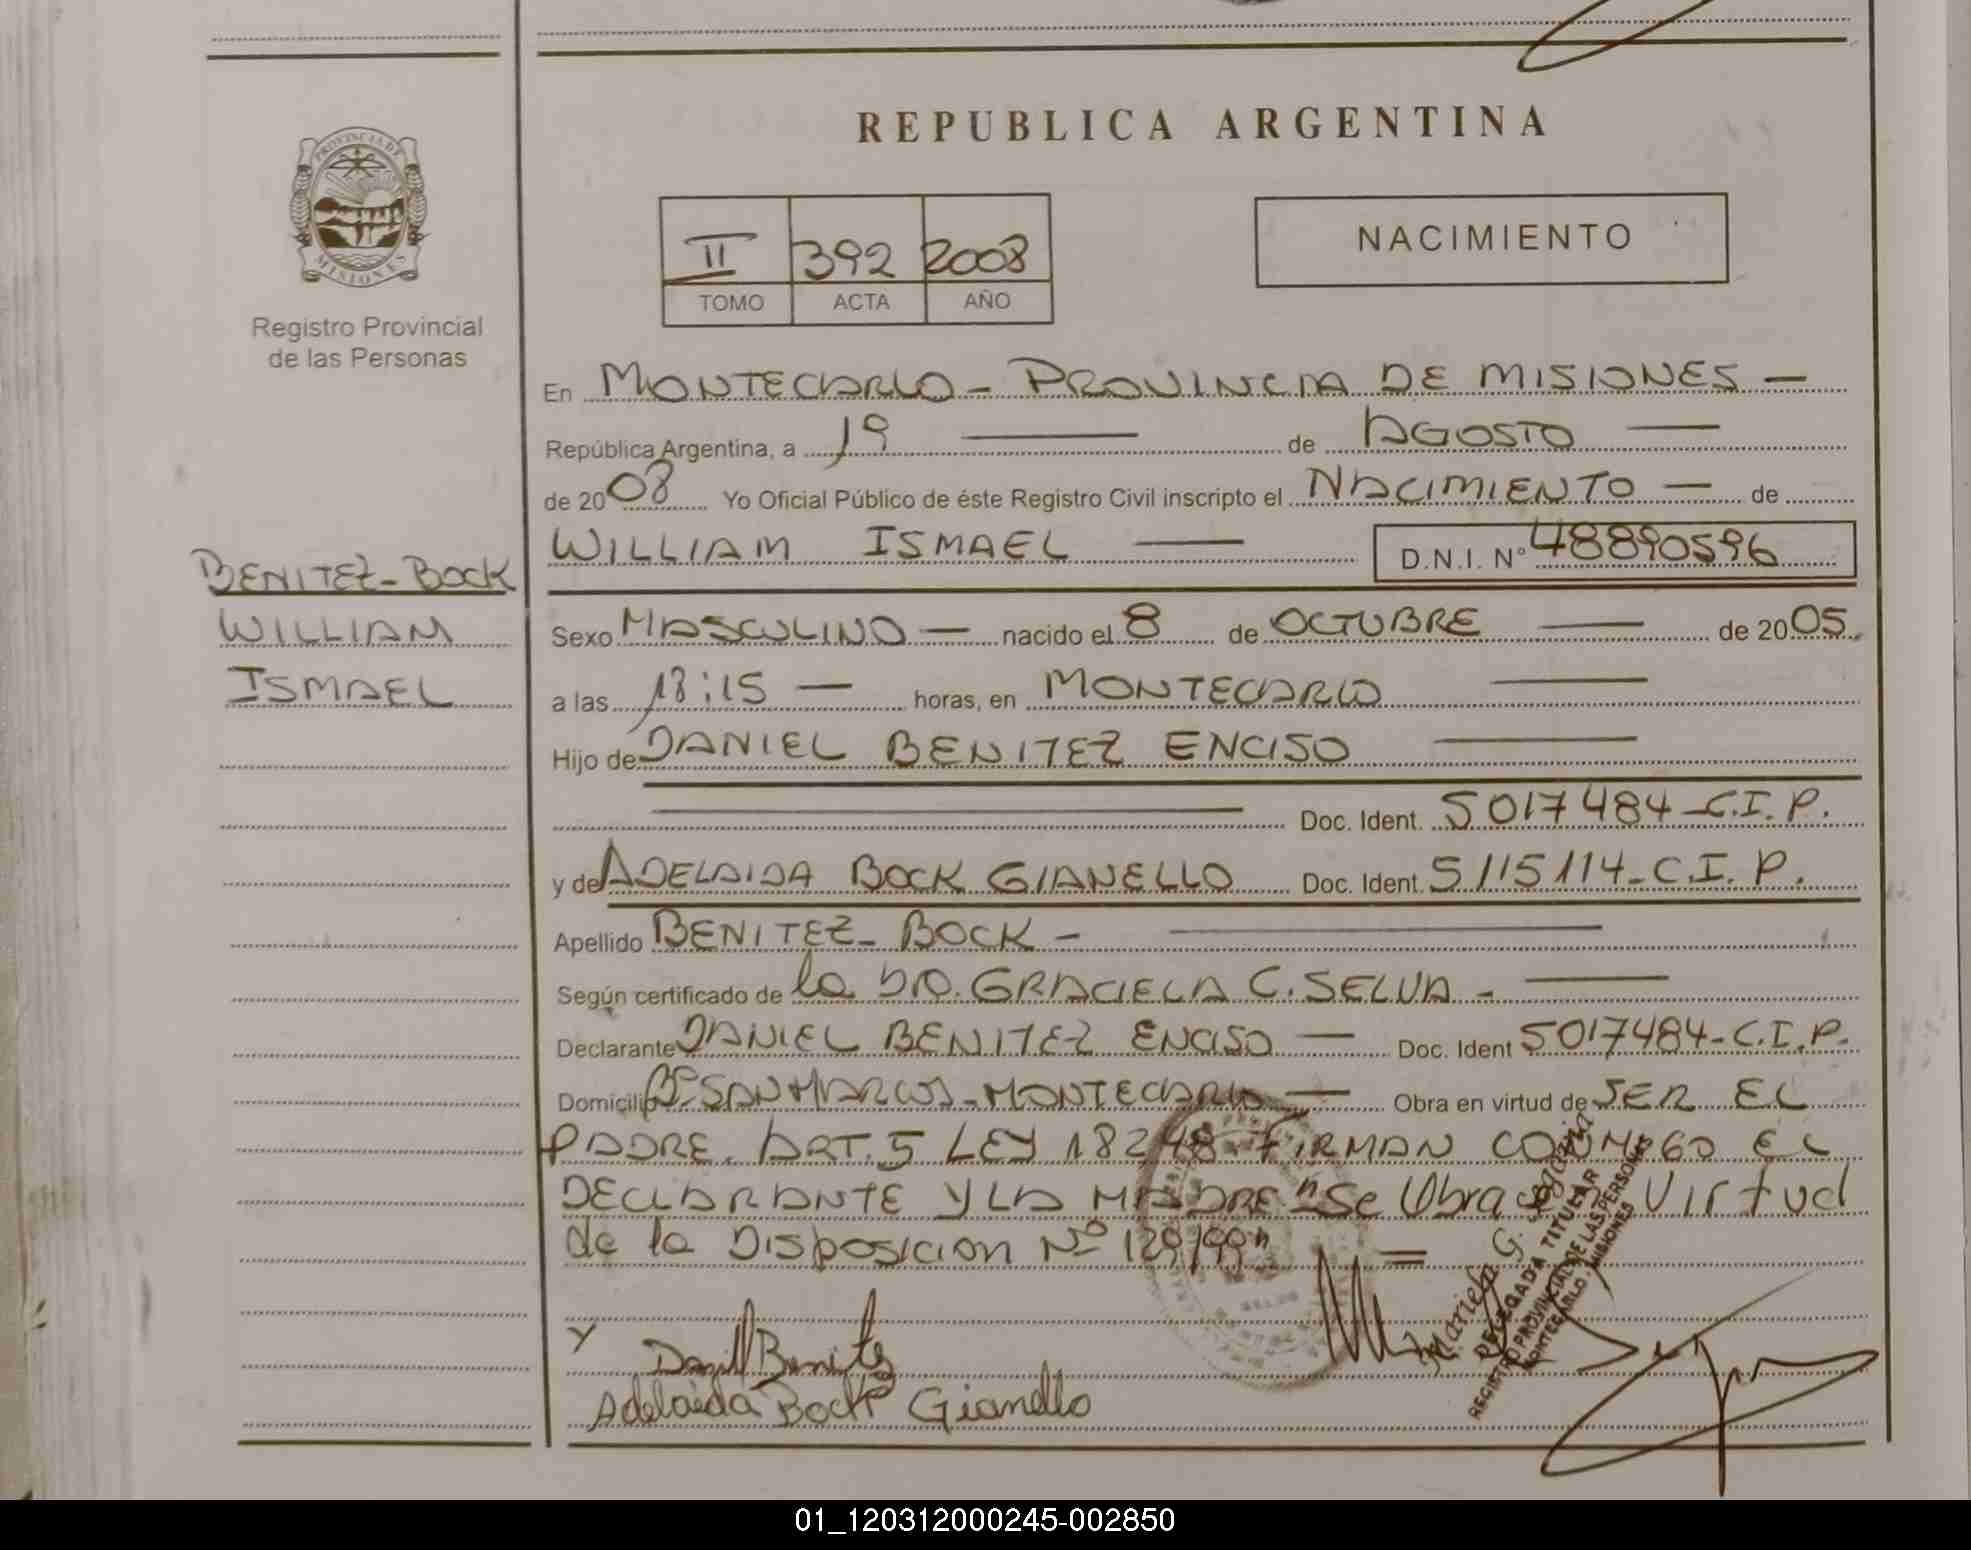 REPUBLICA ARGENTINA
PROVINCIA DE
MISIONES
Registro Provincial
de las Personas
II 392 2008
TOMO ACTA AÑO
NACIMIENTO
En MONTECARLO - PROVINCIA DE MISIONES -
República Argentina, a 19 — de AGOSTO —
de 2008 Yo Oficial Público de éste Registro Civil inscripto el NACIMIENTO — de
WILLIAM ISMAEL — D.N.I. N° 48890596
BENITEZ-BOCK
WILLIAM
ISMAEL
Sexo MASCULINO — nacido el 8 de OCTUBRE — de 2005
a las 18:15 — horas, en MONTECARLO —
Hijo de DANIEL BENITEZ ENCISO —
— Doc. Ident. 5017484-C.I.P.
y de ADELAIDA BOCK GIANELLO Doc. Ident. 5115114-C.I.P.
Apellido BENITEZ-BOCK - —
Según certificado de la DRA. GRACIELA C. SELVA - —
Declarante DANIEL BENITEZ ENCISO — Doc. Ident 5017484-C.I.P.
Domicilio Bº SAN MARCOS - MONTECARLO — Obra en virtud de SER EL
PADRE. ART. 5 LEY 18248. FIRMAN CONMIGO EL
DECLARANTE Y LA MADRE "Se Obra en Virtud
de la Disposicion Nº 129/99" =
Mariela G.
DELEGADA TITULAR
REGISTRO PROVINCIAL DE LAS PERSONAS
MONTECARLO - MISIONES
Y Daniel Benitez
Adelaida Bock Gianello
01_120312000245-002850